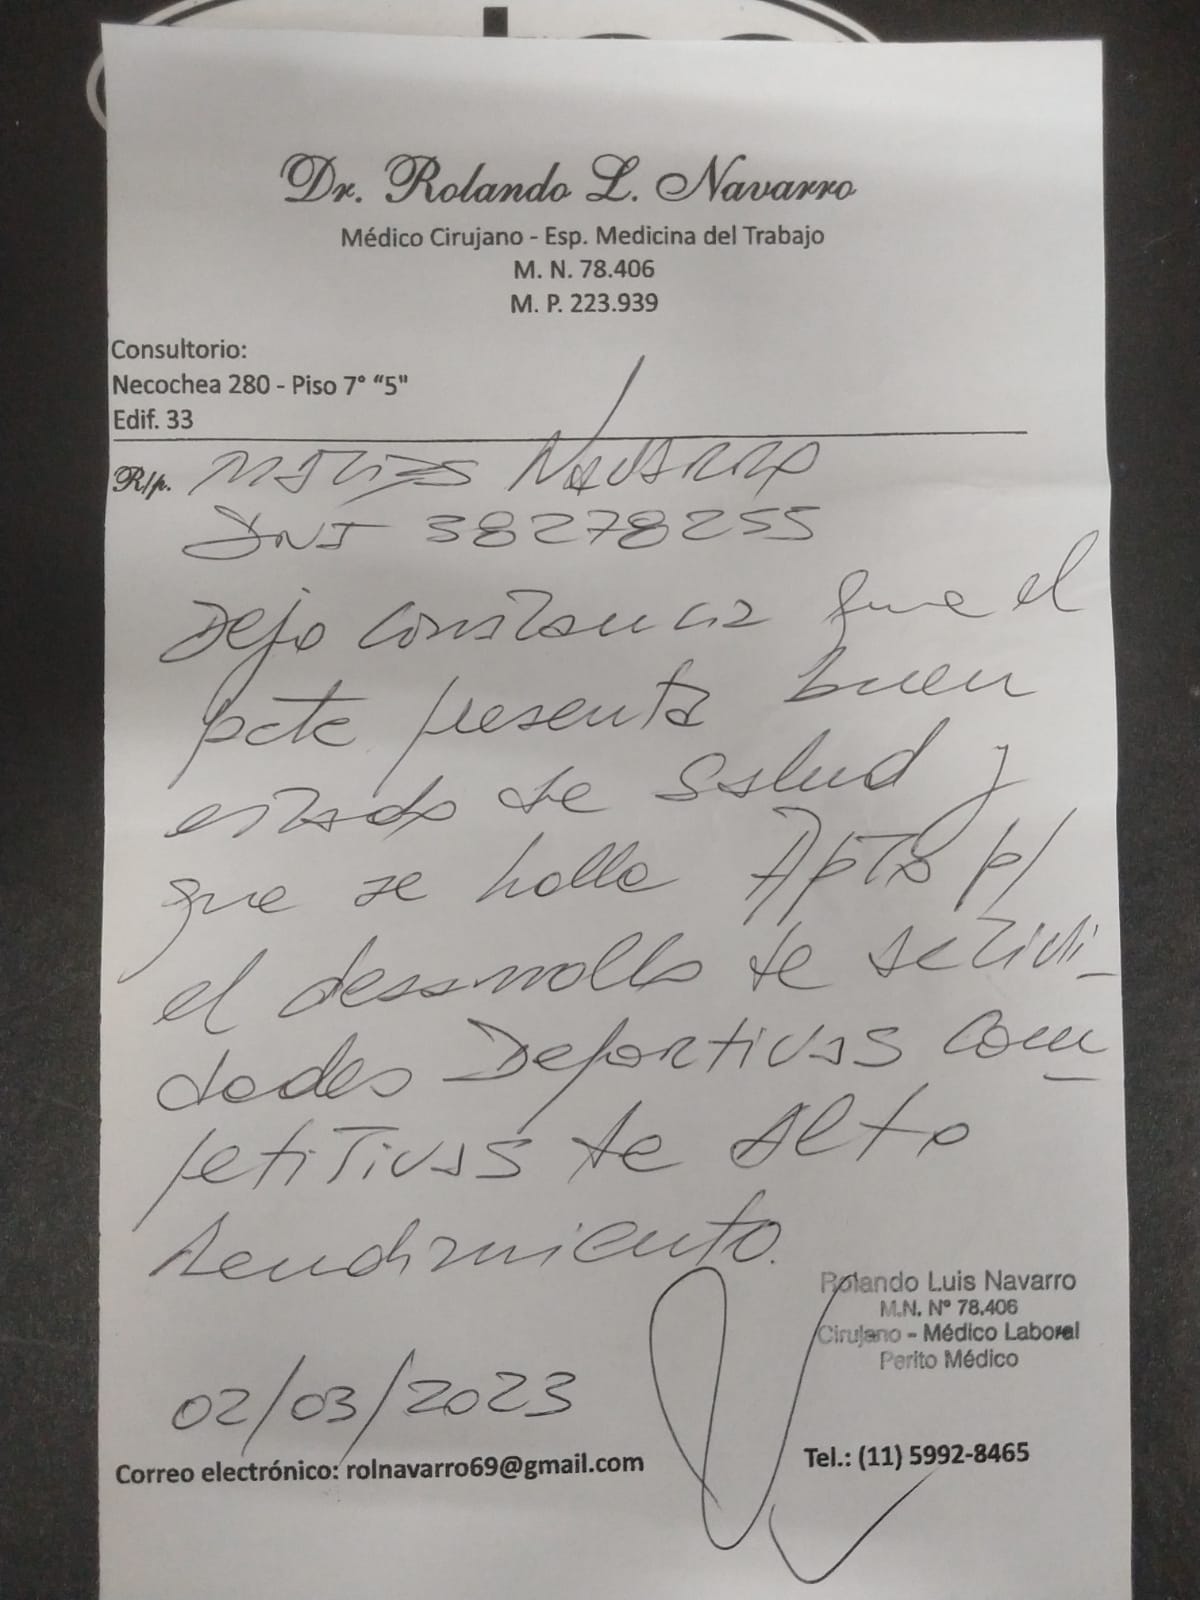 Dr. Rolando L. Navarro
Médico Cirujano - Esp. Medicina del Trabajo
M. N. 78.406
M. P. 223.939
Consultorio:
Necochea 280 - Piso 7° “5"
Edif. 33
R/p. MATIAS NAVARRO
DNI 38278255
Dejo constancia que el
pcte presenta buen
estado de salud y
que se halla APTO p/
el desarrollo de activi-
dades Deportivas com-
petitivas de alto
rendimiento.
Rolando Luis Navarro
M.N. Nº 78.406
Cirujano - Médico Laboral
Perito Médico
02/03/2023
Correo electrónico: rolnavarro69@gmail.com
Tel.: (11) 5992-8465